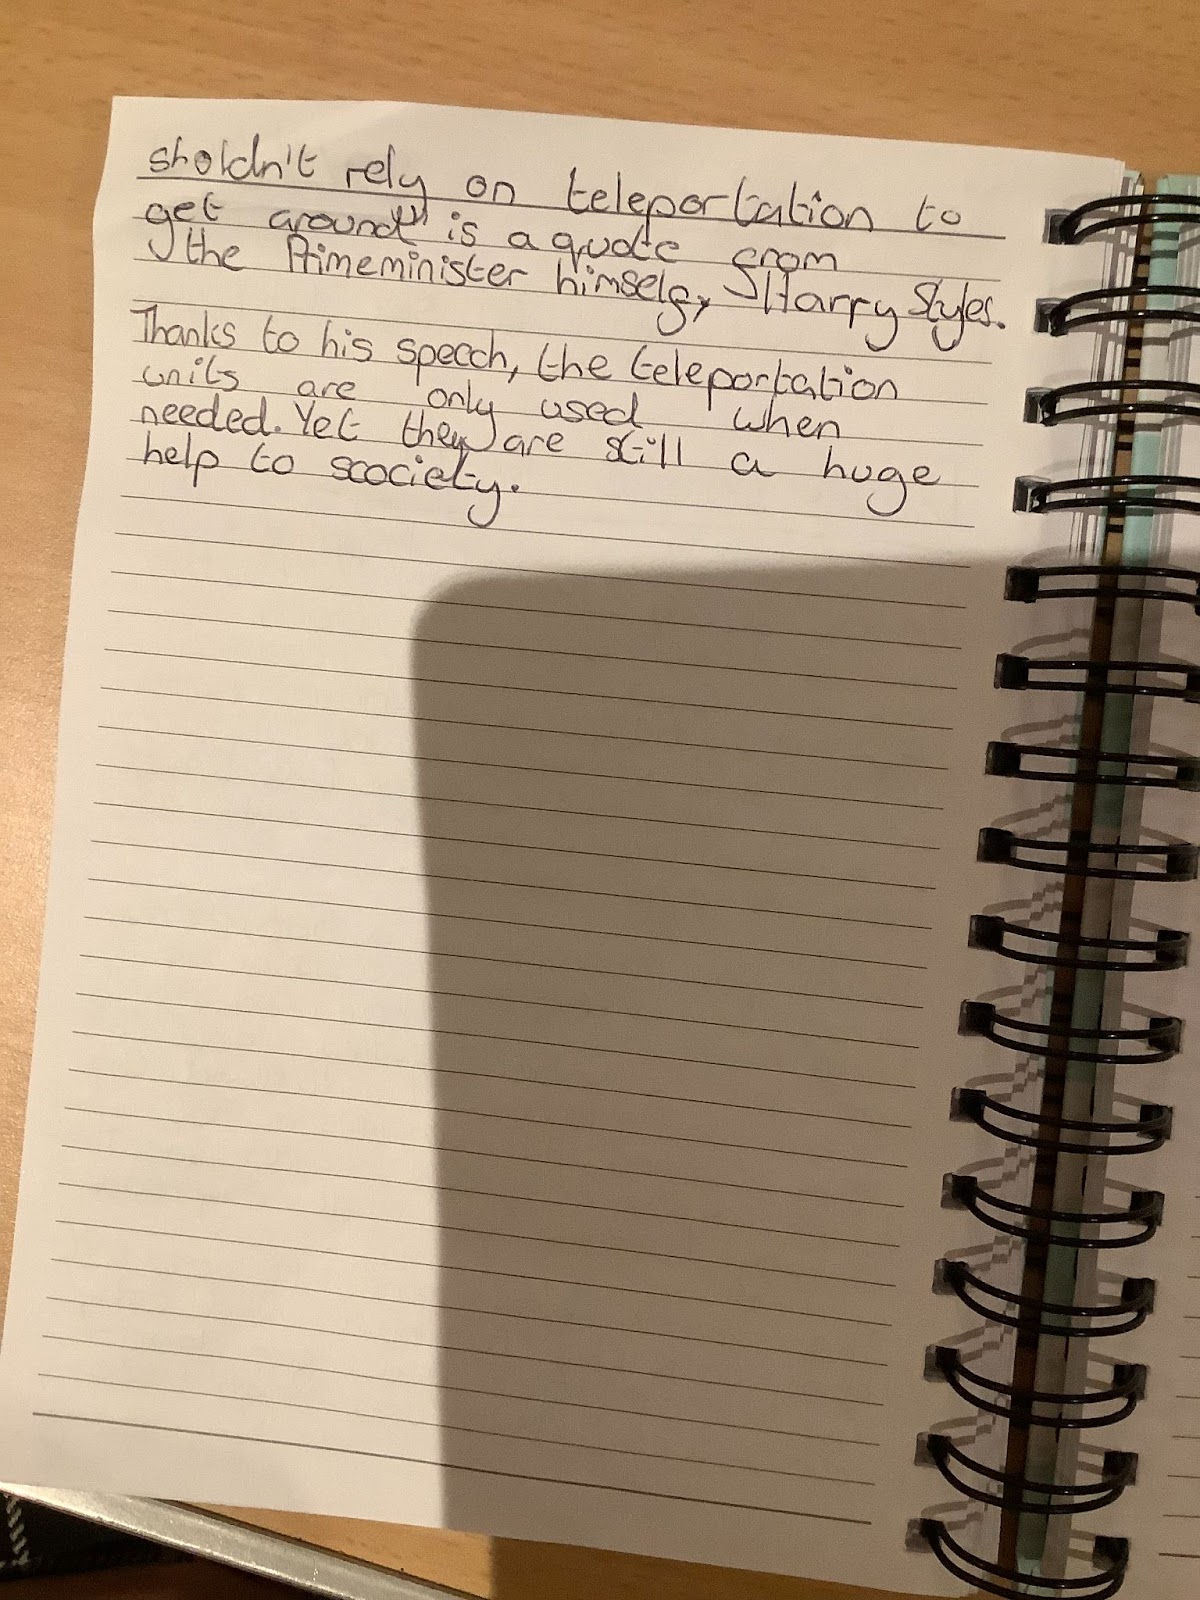 sholdn't rely on teleportation to
get around" is a quote from
the Primeminister himself, Harry Styles.
Thanks to his speech, the teleportation
units are only used when
needed. Yet they are still a huge
help to scociety.